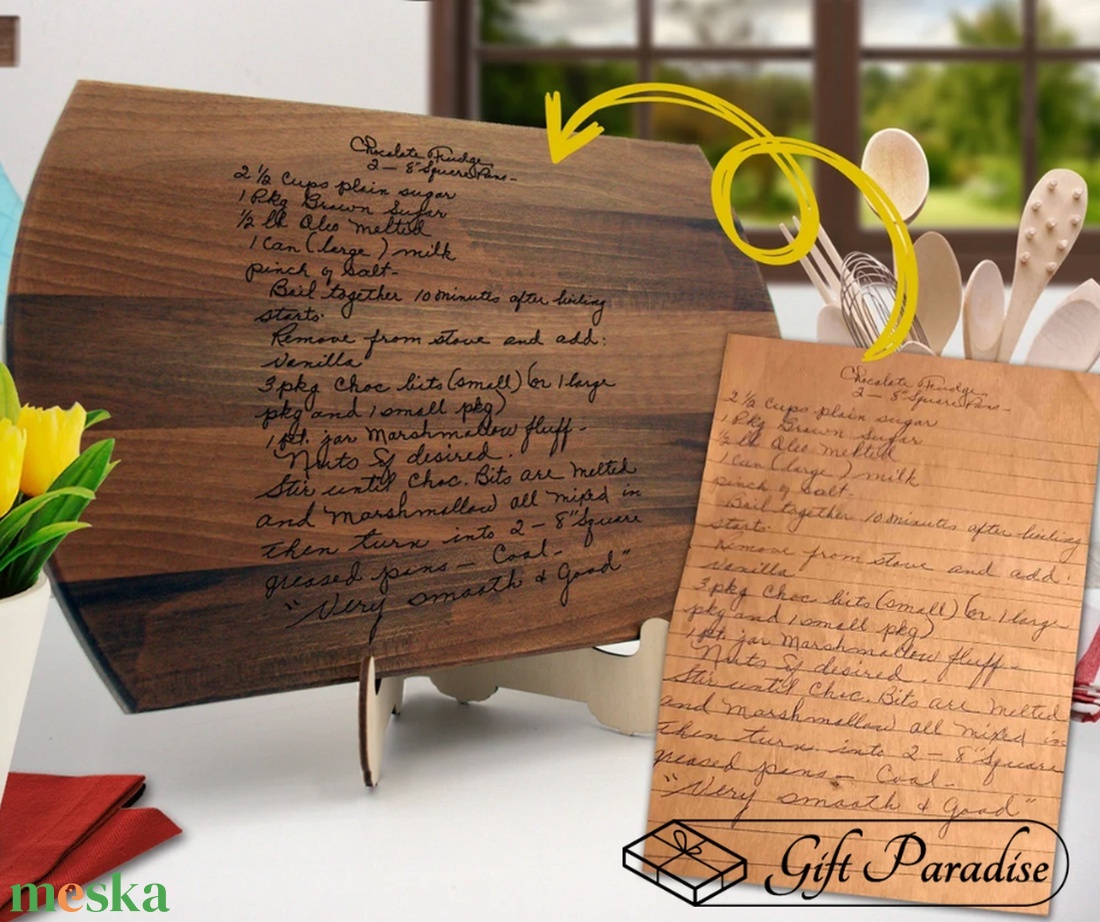 Chocolate Fudge
2 — 8" Square Pans -
2 ½ Cups plain sugar
1 Pkg Brown Sugar
½ lb Oleo Melted
1 Can (large) milk
pinch of salt-
Boil together 10 minutes after boiling
starts.
Remove from stove and add:
Vanilla
3 pkg Choc bits (small) (or 1 large
pkg and 1 small pkg)
1 pt. jar Marshmallow fluff -
Nuts if desired.
Stir until Choc. Bits are melted
and Marshmallow all mixed in
then turn into 2 - 8" Square
greased pans — Cool -
"Very smooth & Good"
Chocolate Fudge
2 — 8" Square Pans -
2 ½ Cups plain sugar
1 Pkg Brown Sugar
½ lb Oleo Melted
1 Can (large) milk
pinch of salt-
Boil together 10 minutes after boiling
starts.
Remove from stove and add:
Vanilla
3 pkg Choc bits (small) (or 1 large
pkg and 1 small pkg)
1 pt. jar Marshmallow fluff -
Nuts if desired.
Stir until Choc. Bits are melted
and Marshmallow all mixed in
then turn into 2 - 8" Square
greased pans — Cool -
"Very smooth & Good"
Gift Paradise
meska